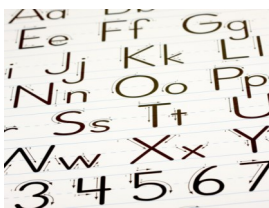 Aa Bb
Ee Ff Gg
i Jj Kk Ll
Nn Oo Pp
r Ss Tt U
Ww Xx Y
3 4 5 6 7